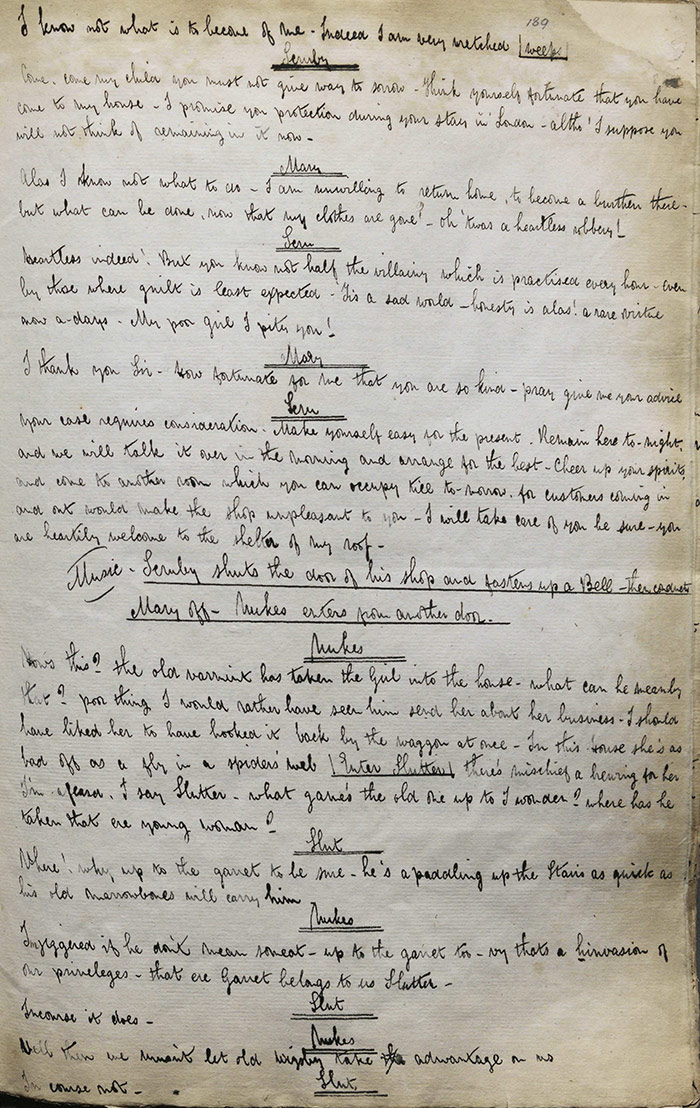 189
I know not what is to become of me - Indeed I am very wretched (weeps)
Scruby
Come, come my child you must not give way to sorrow - Think yourself fortunate that you have
come to my house - I promise you protection during your stay in London - altho' I suppose you
will not think of remaining in it now -
Mary
Alas I know not what to do - I am unwilling to return home, to become a burthen there -
but what can be done, now that my clothes are gone? - oh 'twas a heartless robbery!
Scru
Heartless indeed! But you know not half the villainy which is practised every hour - even
by those where guilt is least expected - 'Tis a sad world - honesty is alas! a rare virtue
now a-days - My poor girl I pity you!
Mary
I thank you Sir - How fortunate for me that you are so kind - pray give me your advice
Scru
Your case requires consideration. Make yourself easy for the present. Remain here to-night,
and we will talk it over in the morning and arrange for the best - Cheer up your spirits,
and come to another room which you can occupy till to-morrow, for customers coming in
and out would make the shop unpleasant to you - I will take care of you be sure - you
are heartily welcome to the shelter of my roof -
Music - Scruby shuts the door of his shop and fastens up a Bell - then conducts
Mary off - Nukes enters from another door.
Nukes
How's this? the old varmint has taken the Girl into the house - what can he mean by
that? poor thing I would rather have seen him send her about her business - I should
have liked her to have hooked it back by the waggon at once - In this house she's as
bad off as a fly in a spider's web (Enter Slutter) there's mischief a brewing for her
I'm afeard. I say Slutter - what game's the old one up to I wonder? where has he
taken that ere young woman?
Slut
Where! why, up to the garret to be sure - he's a paddling up the Stairs as quick as
his old marrowbones will carry him
Nukes
I'm jiggered if he don't mean someat - up to the garret too - vy thats a hinvasion of
our privileges - that ere Garret belongs to us Slutter -
Slut
Incourse it does -
Nukes
Well then we mus'nt let old take advantage on us
Slut
In course not -